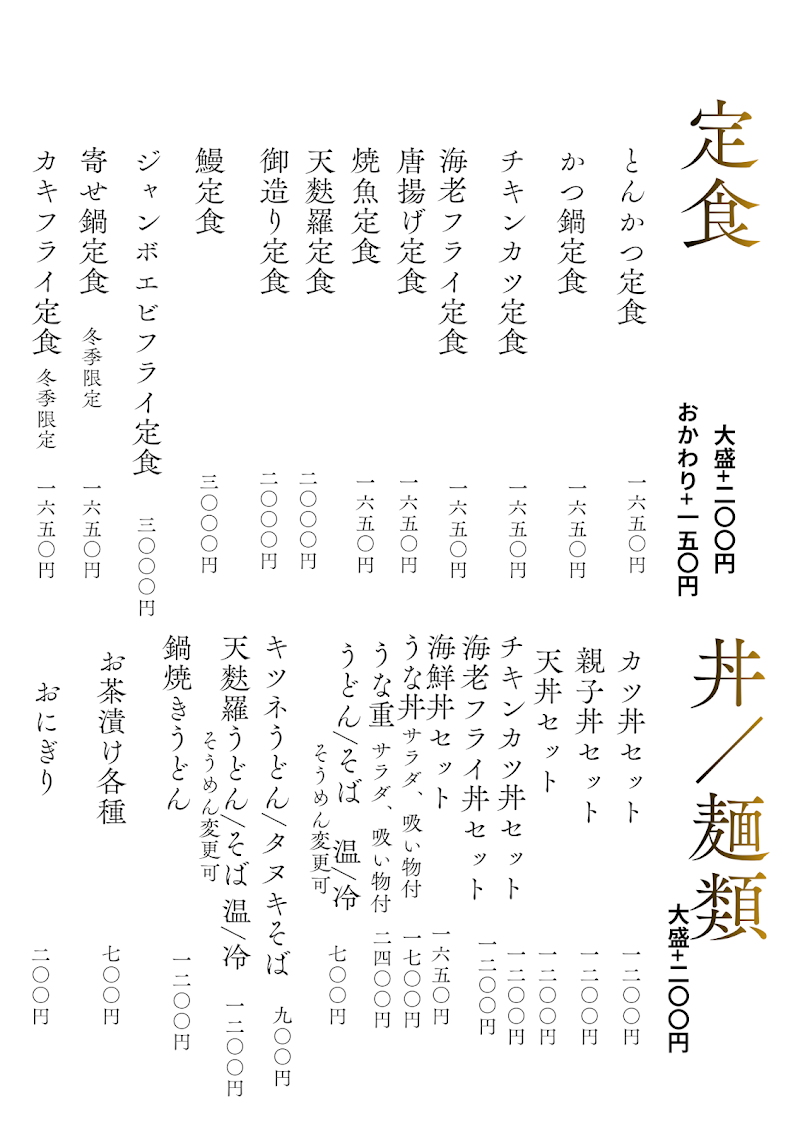 定食
大盛+二〇〇円
おかわり+一五〇円
とんかつ定食 一六五〇円
かつ鍋定食 一六五〇円
チキンカツ定食 一六五〇円
海老フライ定食 一六五〇円
唐揚げ定食 一六五〇円
焼魚定食 一六五〇円
天麩羅定食 二〇〇〇円
御造り定食 二〇〇〇円
鰻定食 三〇〇〇円
ジャンボエビフライ定食 三〇〇〇円
寄せ鍋定食 冬季限定 一六五〇円
カキフライ定食 冬季限定 一六五〇円
丼/麺類
大盛+二〇〇円
カツ丼セット 一二〇〇円
親子丼セット 一二〇〇円
天丼セット 一二〇〇円
チキンカツ丼セット 一二〇〇円
海老フライ丼セット 一二〇〇円
海鮮丼セット 一六五〇円
うな丼サラダ、吸い物付 一七〇〇円
うな重 サラダ、吸い物付 二四〇〇円
うどん/そば 温/冷 七〇〇円
そうめん変更可
キツネうどん/タヌキそば 九〇〇円
天麩羅うどん/そば 温/冷 一二〇〇円
そうめん変更可
鍋焼きうどん 一二〇〇円
お茶漬け各種 七〇〇円
おにぎり 二〇〇円